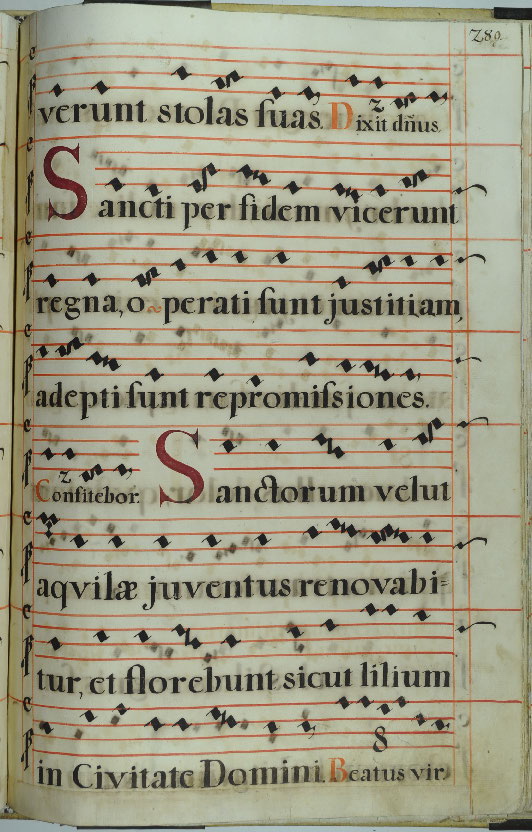 289.
verunt stolas suas. Dixit dñus.
2
Sancti per fidem vicerunt
regna, operati sunt justitiam,
adepti sunt repromissiones.
2
Confitebor. Sanctorum velut
aquilæ juventus renovabi=
tur, et florebunt sicut lilium
8
in Civitate Domini. Beatus vir.